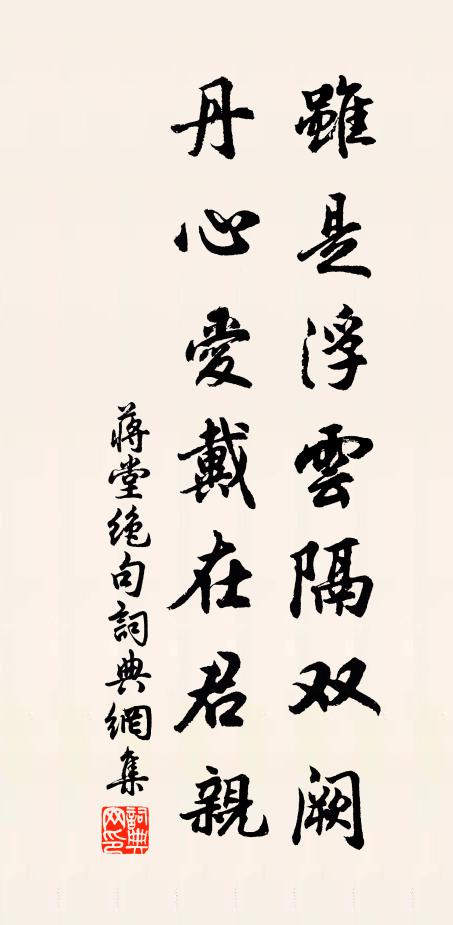 雖是浮雲隔双阙
丹心愛戴在君親
蒋堂绝句詞典網集
詞典网印